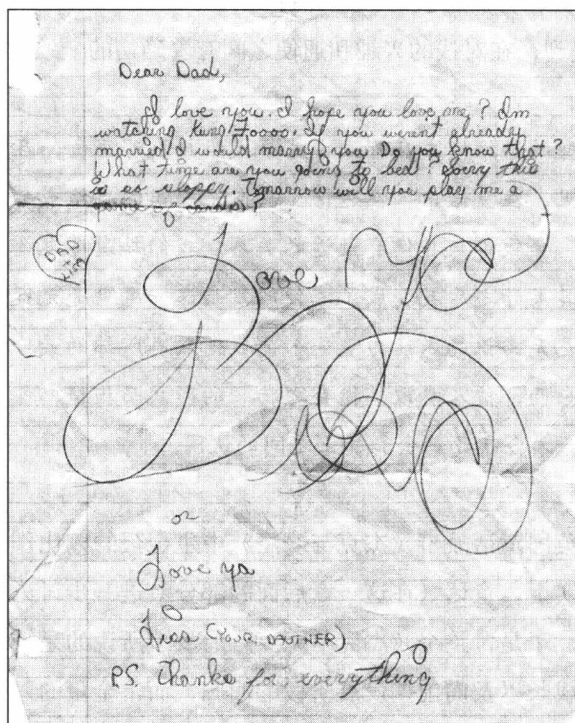 Dear Dad,
I love you. I hope you love me? Im
watching Kung Foooo. If you werent already
married I would marry you. Do you know that?
What time are you going to bed? Sorry this
is so sloppy. Tomarrow will you play me a
game of cards?
DAD
+
Love
or
Love ya
(YOUR
PS. Thanks for everything